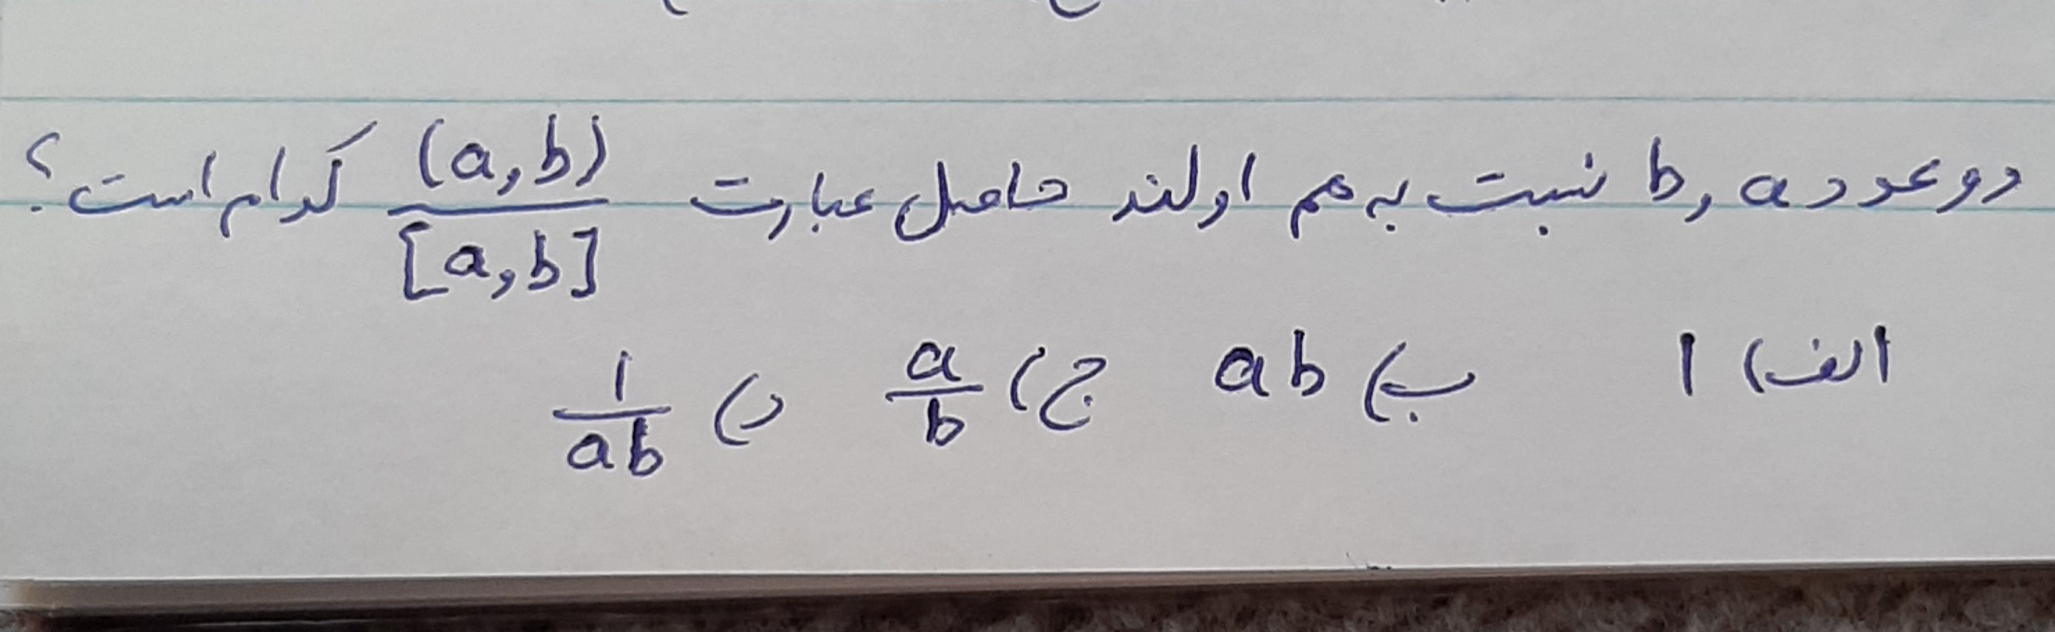 دو عدد a و b نسبت به هم اولند حاصل عبارت (a,b)/[a,b] کدام است؟
الف) ۱ ب) ab ج) a/b د) ۱/ab